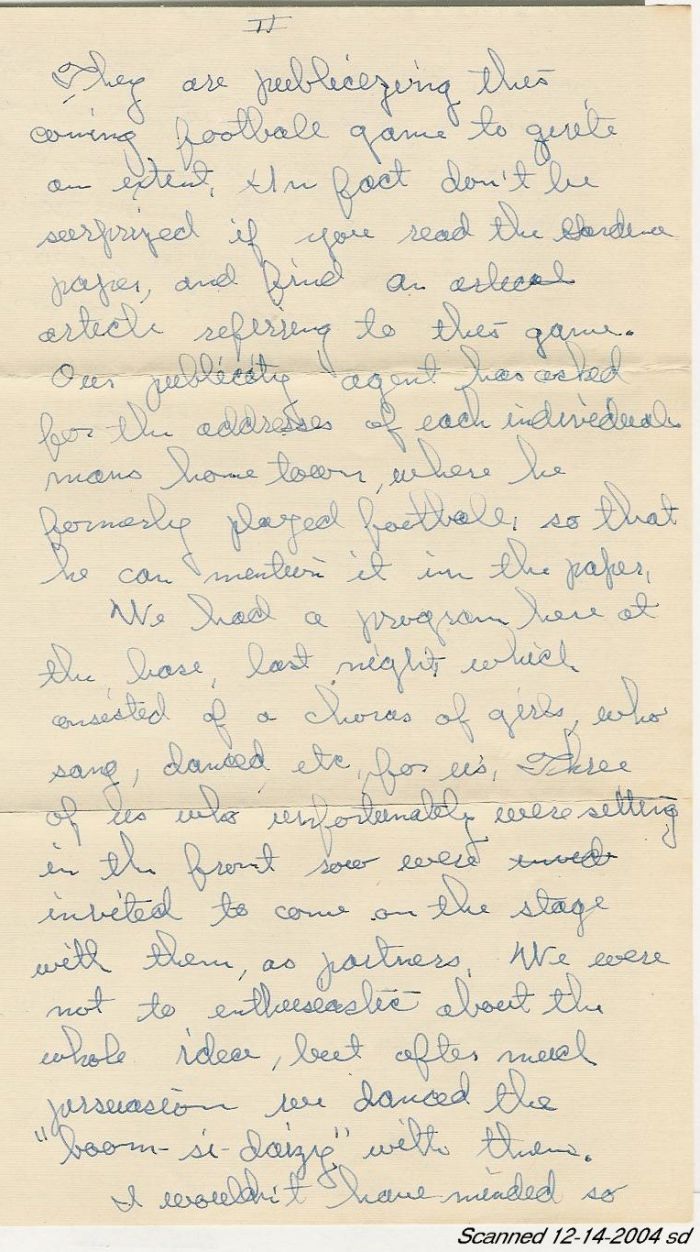 II
They are publicizing this
coming football game to quite
an extent. In fact don't be
surprized if you read the Gardena
paper, and find an artical
article refering to this game.
Our publicity agent has asked
for the addresses of each individuals
mans home town, where he
formerly played football, so that
he can mention it in the paper.
We had a program here at
the base, last night which
consisted of a choras of girls, who
sang, danced, etc, for us. Three
of us who unfortunately were setting
in the front row were
invited to come on the stage
with them, as partners. We were
not to enthuseastic about the
whole idea, but after much
persuasion we danced the
"boom-si-daizy," with them.
I wouldn't have minded so
Scanned 12-14-2004 sd